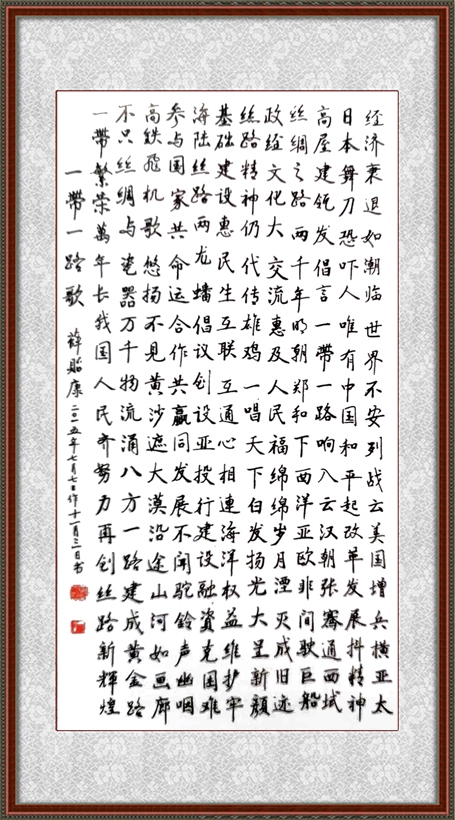 经济衰退如潮临世界不安列战云美国增兵横亚太
日本舞刀恐吓人唯有中国和平起改革发展抖精神
高屋建瓴发倡言一帶一路响入云汉朝张骞通西域
丝绸之路两千年明朝郑和下西洋亚欧非间驶巨船
政经文化大交流惠及人民福绵绵岁月湮灭成旧迹
丝路精神仍代传雄鸡一唱天下白发扬光大呈新颜
基础建设惠民生互联互通心相連海洋权益维护牢
海陆丝路两龙蟠倡议创设亚投行建设融资克困难
参与国家共命运合作共赢同发展不闻驼铃声幽咽
高铁飞机歌悠扬不见黄沙遮大漠沿途山河如画廊
不只丝绸与瓷器万千物流涌八方一路建成黄金路
一帶繁荣萬年长我国人民齐努力再创丝路新輝煌
一帶一路歌 薛贻康二〇一五年七月七日作十一月三日书